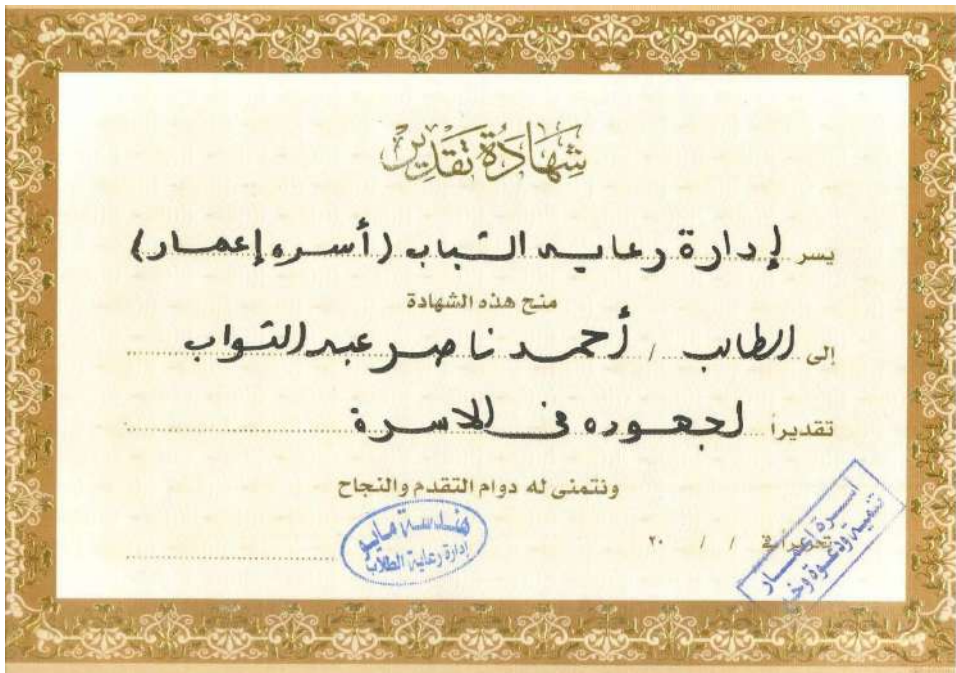 شهادة تقدير
يسر إدارة رعايه الشباب (أسره إعمار)
منح هذه الشهادة
إلى الطالب / أحمد ناصر عبد التواب
تقديراً لجهوده فى الاسرة
ونتمنى له دوام التقدم والنجاح
تحريراً في / / ٢٠
هندسة مايو
إدارة رعاية الطلاب
أسرة إعمار
تنمية ودعوة